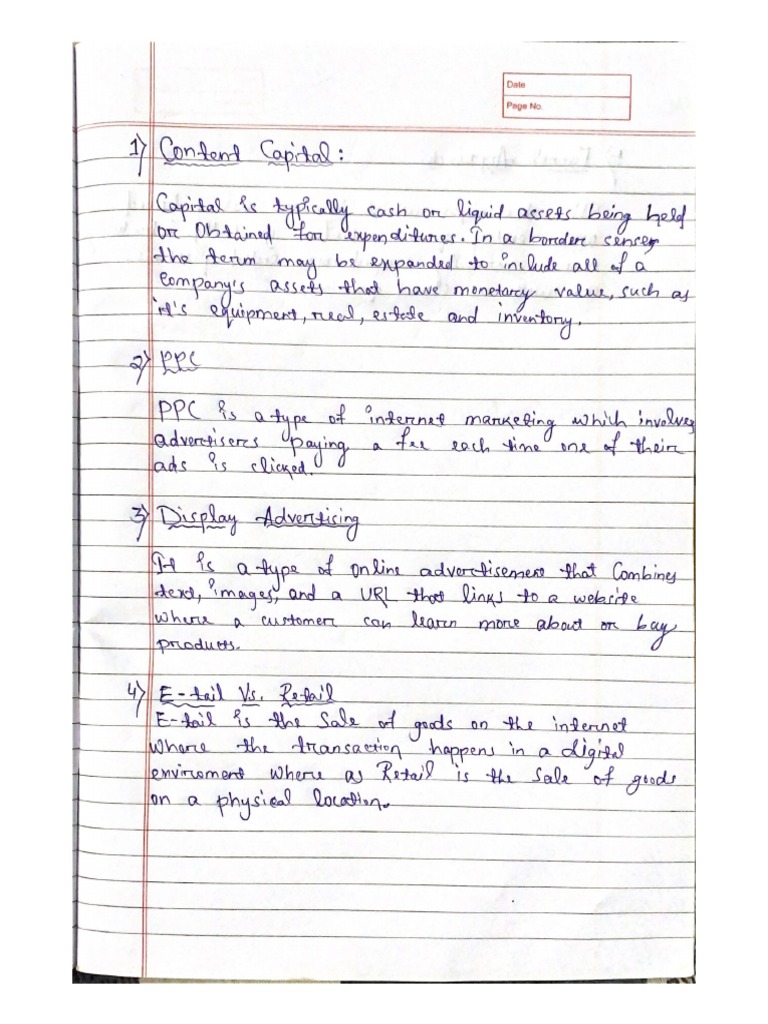 Date
Page No.
1) Content Capital:
Capital is typically cash or liquid assets being held
or Obtained for expenditures. In a border sense,
the term may be expanded to include all of a
Company's assets that have monetary value, such as
it's equipment, real, estate and inventory.
2) PPC
PPC is a type of internet marketing which involves
advertisers paying a fee each time one of their
ads is clicked.
3) Display Advertising
It is a type of online advertisement that Combines
text, images, and a URL that links to a website
where a customer can learn more about or buy
products.
4) E-tail Vs. Retail
E-tail is the Sale of goods on the internet
where the transaction happens in a digital
enviroment where as Retail is the Sale of goods
on a physical location.